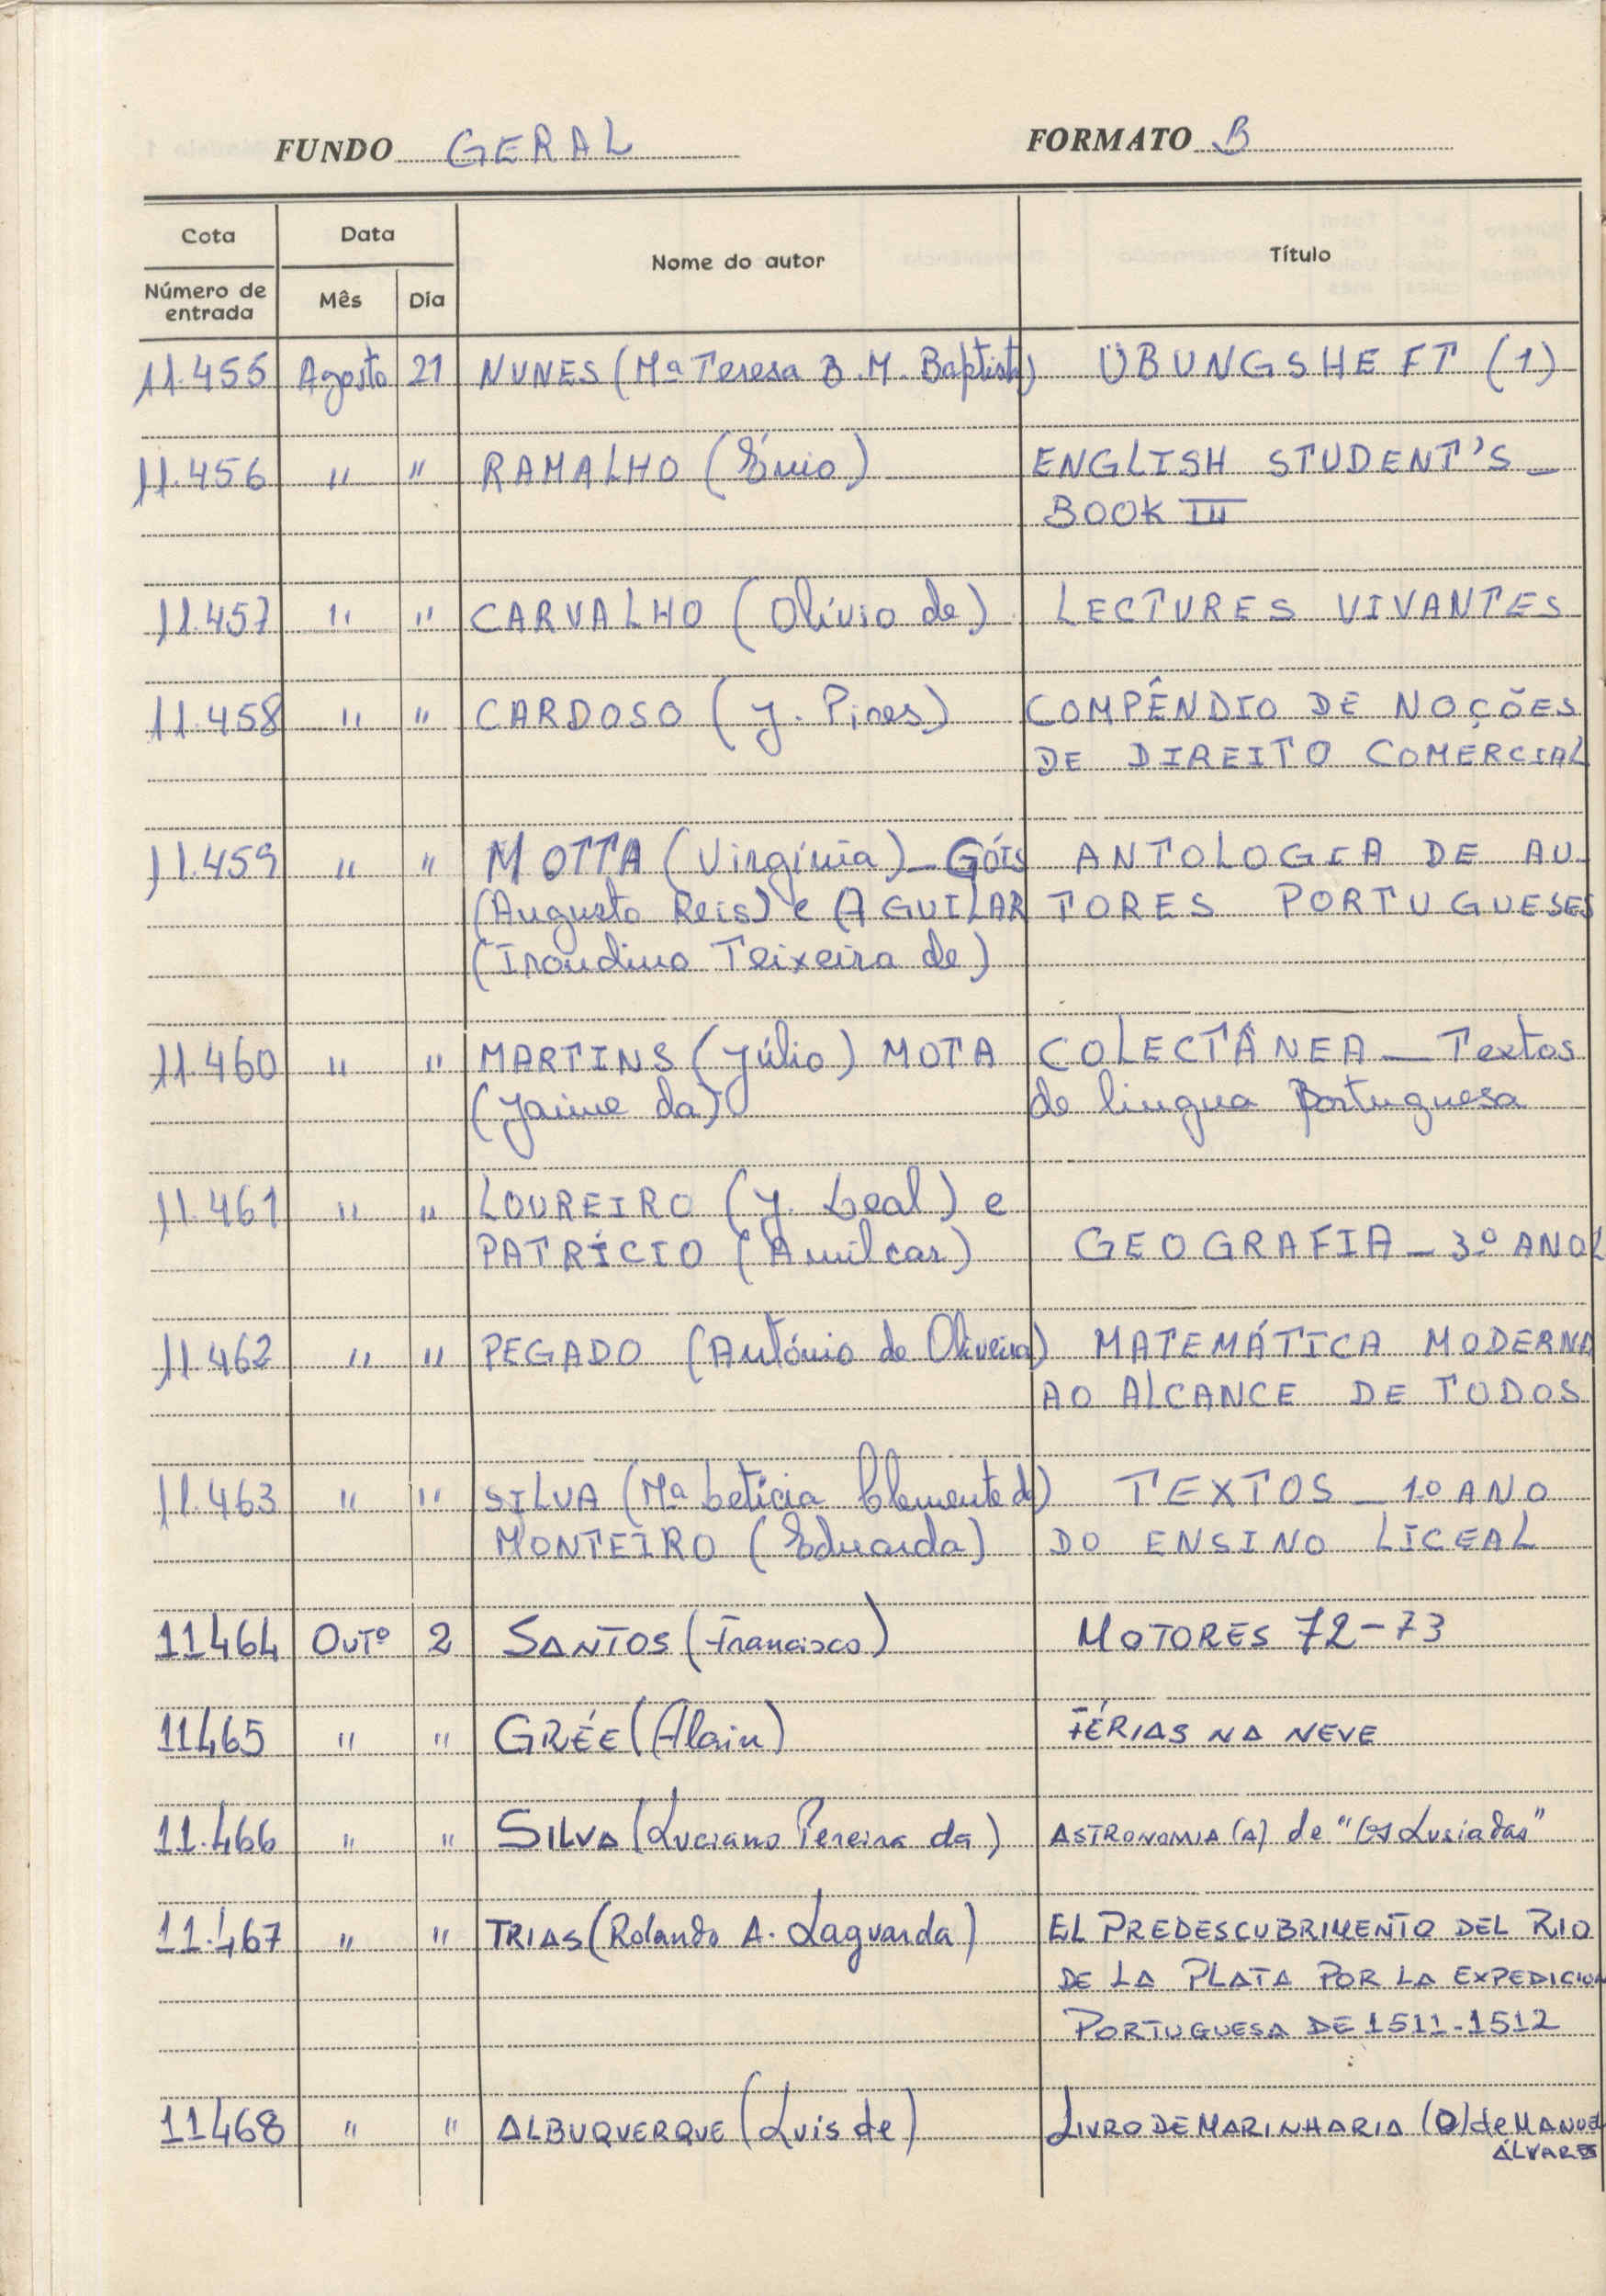 FUNDO GERAL FORMATO B
Cota Data Nome do autor Título
Número de entrada Mês Dia
11.455 Agosto 21 NUNES (Mª Teresa B. M. Baptista) ÜBUNGSHEFT (1)
11.456 " " RAMALHO (Énio) ENGLISH STUDENT'S –
BOOK III
11.457 " " CARVALHO (Olívio de) LECTURES VIVANTES
11.458 " " CARDOSO (J. Pires) COMPÊNDIO DE NOÇÕES
DE DIREITO COMERCIAL
11.459 " " MOTTA (Virgínia) – GÓIS ANTOLOGIA DE AU-
(Augusto Reis) e AGUILAR TORES PORTUGUESES
(Irondino Teixeira de)
11.460 " " MARTINS (Júlio) MOTA COLECTÂNEA – Textos
(Jaime da) de lingua Portuguesa
11.461 " " LOUREIRO (J. Leal) e
PATRÍCIO (Amilcar) GEOGRAFIA – 3.º ANO
11.462 " " PEGADO (António de Oliveira) MATEMÁTICA MODERNA
AO ALCANCE DE TODOS
11.463 " " SILVA (Mª Letícia Clemente da) TEXTOS – 1.º ANO
MONTEIRO (Eduarda) DO ENSINO LICEAL
11464 OUTº 2 SANTOS (Francisco) MOTORES 72-73
11465 " " GRÉE (Alain) FÉRIAS NA NEVE
11.466 " " SILVA (Luciano Pereira da) ASTRONOMIA (A) de "Os Lusiadas"
11.467 " " TRIAS (Rolando A. Laguarda) EL PREDESCUBRIMENTO DEL RIO
DE LA PLATA POR LA EXPEDICION
PORTUGUESA DE 1511-1512
11468 " " ALBUQUERQUE (Luis de) LIVRO DE MARINHARIA (O) de MANUEL
ÁLVARES